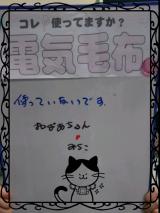 コレ 使ってますか？
電気毛布
使っていないです。
わぴあちゃん
みちこ